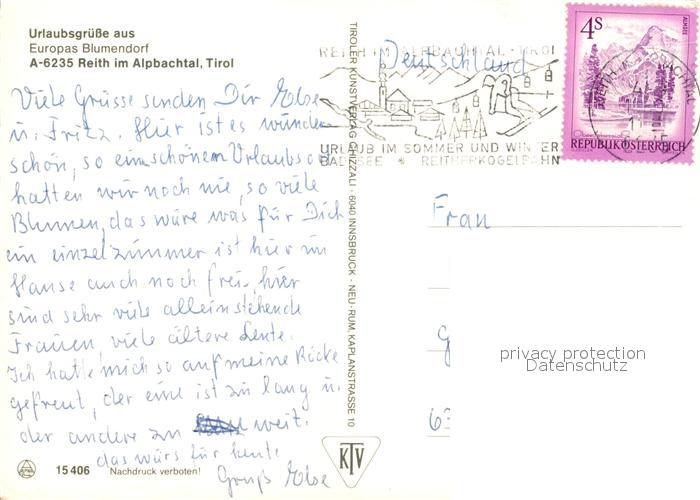 Urlaubsgrüße aus
Europas Blumendorf
A-6235 Reith im Alpbachtal, Tirol
Viele Grüsse senden Dir Else
u. Fritz. Hier ist es wunder
schön, so einen schönen Urlaubsort
hatten wir noch nie, so viele
Blumen, das wäre was für Dich
ein einzelzimmer ist hier im
Hause auch noch frei, hier
sind sehr viele alleinstehende
Frauen, viele ältere Leute.
Ich hatte mich so auf meine Röcke
gefreut, der eine ist zu lang u.
der andere zu weit.
das wärs für heute
Gruß Else
15 406 Nachdruck verboten!
TIROLER KUNSTVERLAG CHIZZALI · 6040 INNSBRUCK - NEU-RUM, KAPLANSTRASSE 10
KTV
REITH IM ALPBACHTAL · TIROL
URLAUB IM SOMMER UND WINTER
BADESEE * REITHERKOGELBAHN
4S
ALMSEE
REPUBLIK ÖSTERREICH
Deutschland
Frau
G
63
privacy protection
Datenschutz